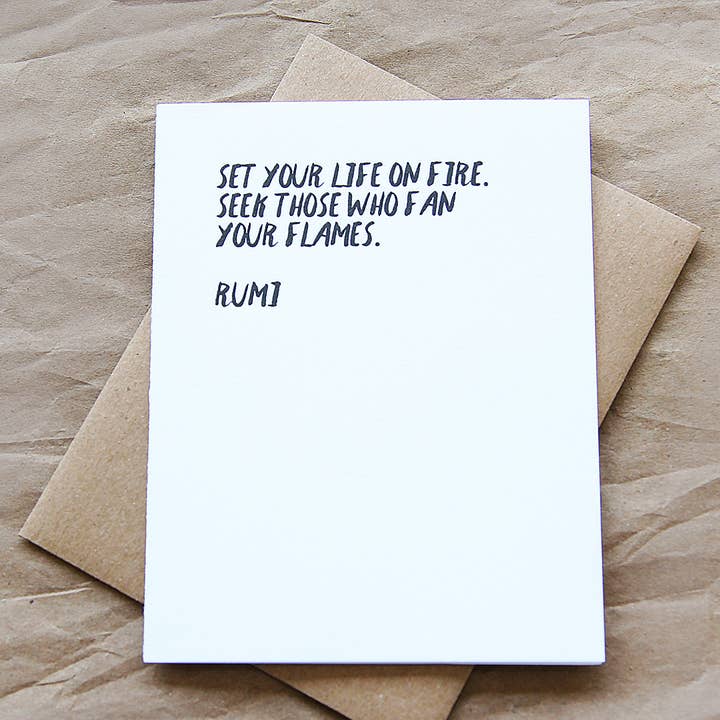 SET YOUR LIFE ON FIRE.
SEEK THOSE WHO FAN
YOUR FLAMES.
RUMI